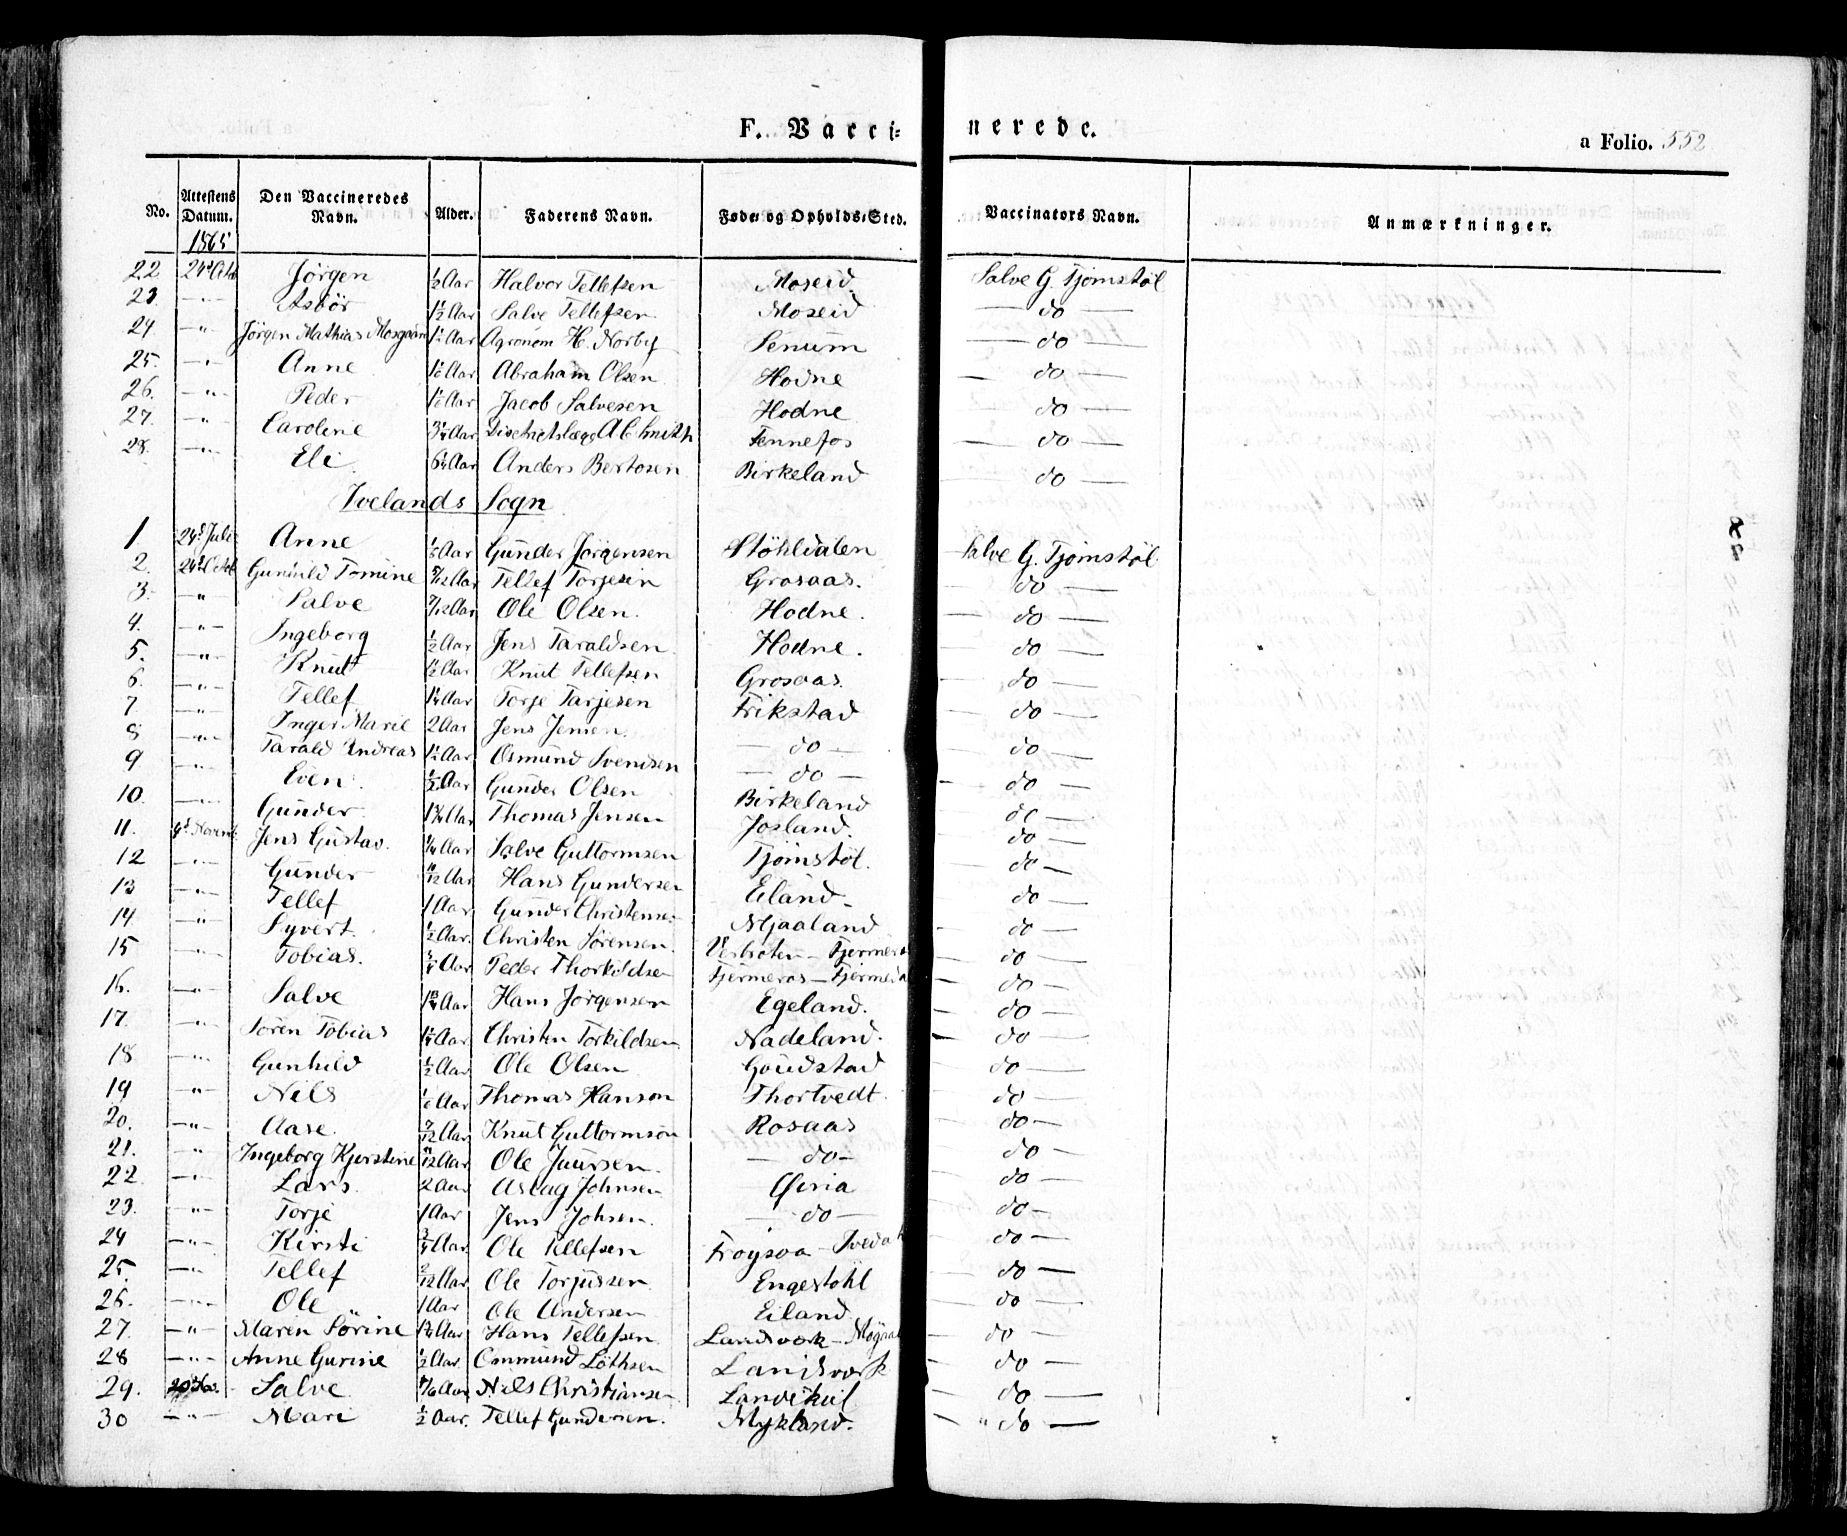 F. Vacci-nerede.
a Folio. 552
No. | Attestens Datum. 1865 | Den Vaccineredes Navn. | Alder. | Faderens Navn. | Føde- og Opholds-Sted. | Vaccinators Navn. | Anmærkninger.
22 | 24d Octob | Jørgen | ½ Aar | Halvor Tellefsen | Moseid | Salve G. Tjomstøl
23 | — " — | Asbør | Aar | Salve Tellefsen | Moseid | — do —
24 | — " — | Jörgen Mathias | Aar | Agronom H. Norby | Senum | — do —
25. | — " — | Anne | Aar | Abraham Olsen | Hodne | — do —
26. | — " — | Peder | Aar | Jacob Salvesen | Hodne | — do —
27. | — " — | Caroline | Aar | Districtslæge | Fennefos | — do —
28. | — " — | Eli | Aar | Anders Bertosen | Birkeland | — do —
Ivelands Sogn
1 | 24d Juli | Anne | Aar | Gunder Jørgensen | Støhldalen | Salve G. Tjomstøl
2. | 24d Octob | Gunhild Tomine | Aar | Tellef Torjesen | Grosaas. | — do —
3. | " | Salve | 7/12 Aar | Ole Olsen. | Hodne. | — do —
4. | — " — | Ingeborg | ½ Aar | Jens Taraldsen | Hodne. | — do —
5. | — " — | Knut | Aar | Knut Tellefsen | Grosaas. | — do —
6. | — " — | Tellef | Aar | Torje Tarjesen | Frikstad | — do —
7 | — " — | Inger Marie | 2 Aar | Jens Jensen. | — do — | — do —
8 | — " — | Tarald Andreas | Aar | Osmund Svendsen | — do — | — do —
9 | — " — | Even | ½ Aar | Gunder Olsen | Birkeland | — do —
10. | — " — | Gunder | Aar | Thomas Jensen | Josland. | — do —
11. | 9d Novemb. | Jens Gustav. | Aar | Salve Guttormsen | Tjomstøl. | — do —
12 | — " — | Gunder | 11/12 Aar | Hans Gundersen | Eiland | — do —
13 | — " — | Tellef | 1 Aar | Gunder Christensen | Mjaaland | — do —
14 | — " — | Syvert. | ½ Aar. | Christen Sørensen. | Fjermeros | — do —
15 | — " — | Tobias. | ¾ Aar | Peder Thorkildsen | Fjermeros — Fjermedal | — do —
16. | — " — | Salve | 1¾ Aar | Hans Jørgensen | Egeland. | — do —
17. | — " — | Søren Tobias | Aar | Christen Torkildsen | Nadeland. | — do —
18 | — " — | Gunhild | ½ Aar | Ole Olsen | Goudstad | — do —
19 | — " — | Nils | Aar | Thomas Hanson | Thortvedt. | — do —
20. | — " — | Aase. | 7/12 Aar | Knut Guttormson | Rosaas | — do —
21. | — " — | Ingeborg Kjerstine | 11/12 Aar | Ole Juursen. | — do — | — do —
22. | — " — | Lars. | 2 Aar | Aslag Johnsen | | — do —
23. | — " — | Torje | 1 Aar | Jens Johsen. | — do — | — do —
24 | — " — | Kirsti | ¾ Aar | Ole Tellefsen | Froysaa — | — do —
25. | — " — | Tellef | Aar | Ole Torjussen | Engestøhl | — do —
26. | — " — | Ole | 1 Aar | Ole Andersen | Eiland. | — do —
27. | — " — | Maren Sørine | Aar | Hans Tellefsen | Landsværk — | — do —
28 | — " — | Anne Gurine | ½ Aar. | Ommund Löthsen | Landsværk | — do —
29. | Nov. | Salve | Aar | Nils Christiansen | | — do —
30 | — " — | Mari | ½ Aar. | Tellef Gundersen. | Mykland. | — " do —